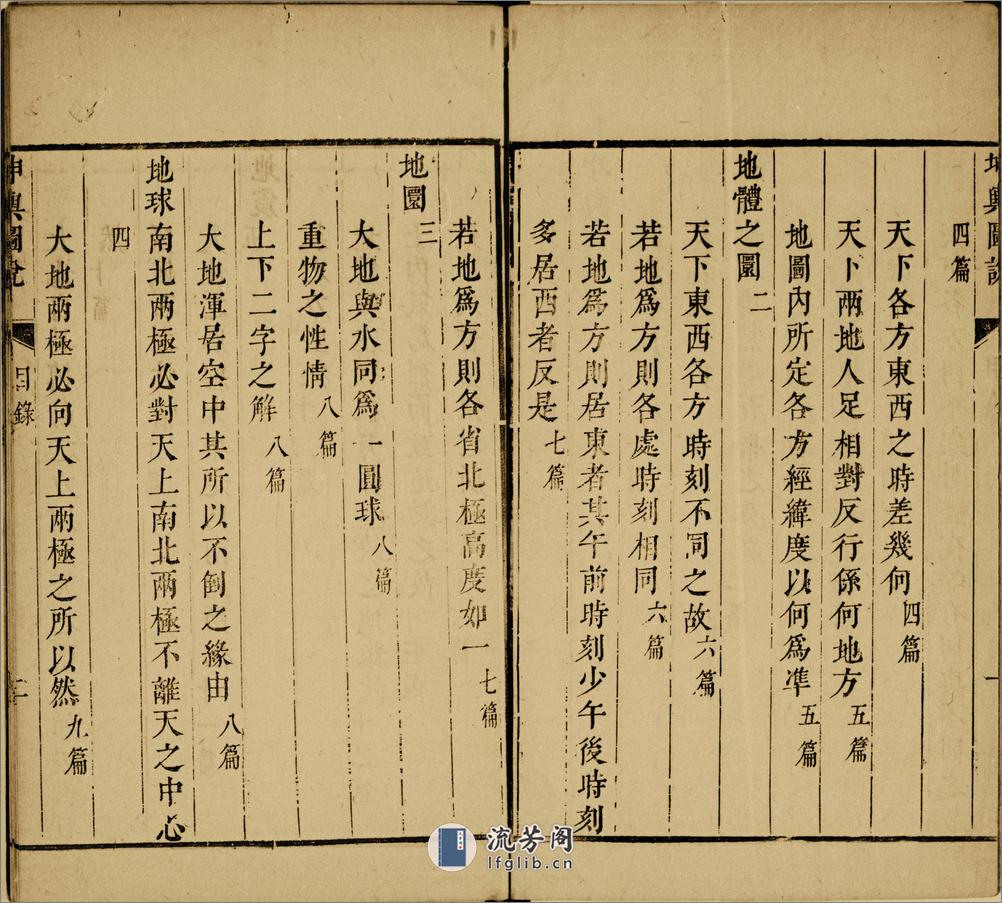 坤輿圖說
一
四篇
天下各方東西之時差幾何四篇
天下兩地人足相對反行係何地方五篇
地圖內所定各方經緯度以何為準五篇
地體之圜二
天下東西各方時刻不同之故六篇
若地爲方則各處時刻相同六篇
若地爲方則居東者其午前時刻少午後時刻
多居西者反是七篇
若地爲方則各省北極高度如一七篇
地圜三
大地與水同爲一圓球八篇
重物之性情八篇
上下二字之解八篇
大地渾居空中其所以不倒之緣由八篇
地球南北兩極必對天上南北兩極不離天之中心
四
大地兩極必向天上兩極之所以然九篇
坤輿圖說 目錄 二
流芳阁
lfglib.cn